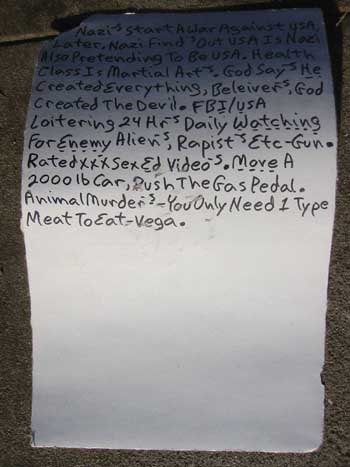 Nazi's Start A War Against USA,
Later, Nazi Find's Out USA Is Nazi
Also Pretending To Be USA. Health
Class Is Martial Art's. God Say's He
Created Everything, Beleiver's, God
Created The Devil. FBI/USA
Loitering 24 Hr's Daily Watching
For Enemy Alien's, Rapist's Etc-Gun.
Rated XXX Sex Ed Video's. Move A
2000 lb Car, Push The Gas Pedal.
Animal Murder's-You Only Need 1 Type
Meat To Eat-Vega.